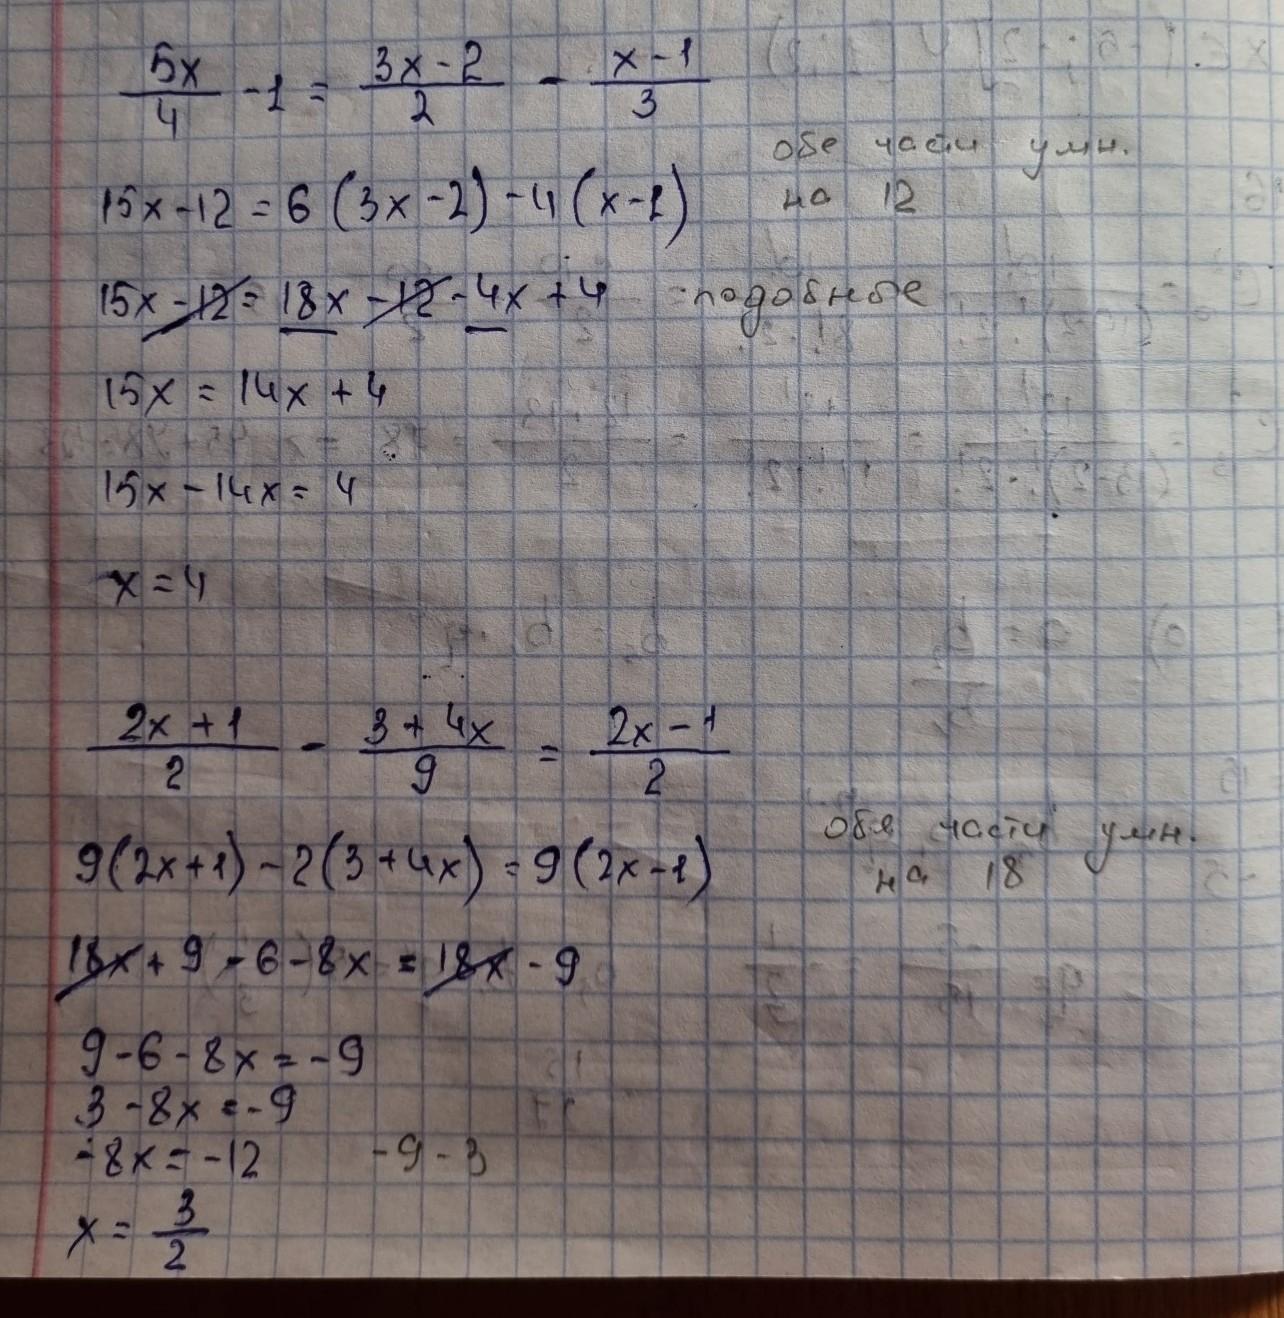 5x/4 - 1 = (3x - 2)/2 - (x - 1)/3
обе части умн.
15x - 12 = 6 (3x - 2) - 4 (x - 1) на 12
15x - 12 = 18x - 12 - 4x + 4 подобные
15x = 14x + 4
15x - 14x = 4
x = 4
(2x + 1)/2 - (3 + 4x)/9 = (2x - 1)/2
обе части умн.
9(2x+1) - 2(3+4x) = 9(2x-1) на 18
18x + 9 - 6 - 8x = 18x - 9
9 - 6 - 8x = -9
3 - 8x = -9
-8x = -12 -9 - 3
x = 3/2